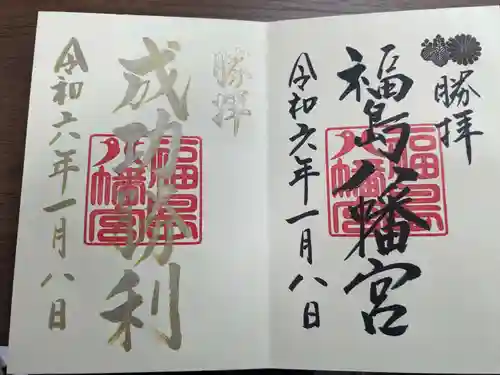 勝拝
福島八幡宮
令和六年一月八日
福島
八幡宮
勝拝
成功勝利
令和六年一月八日
福島
八幡宮